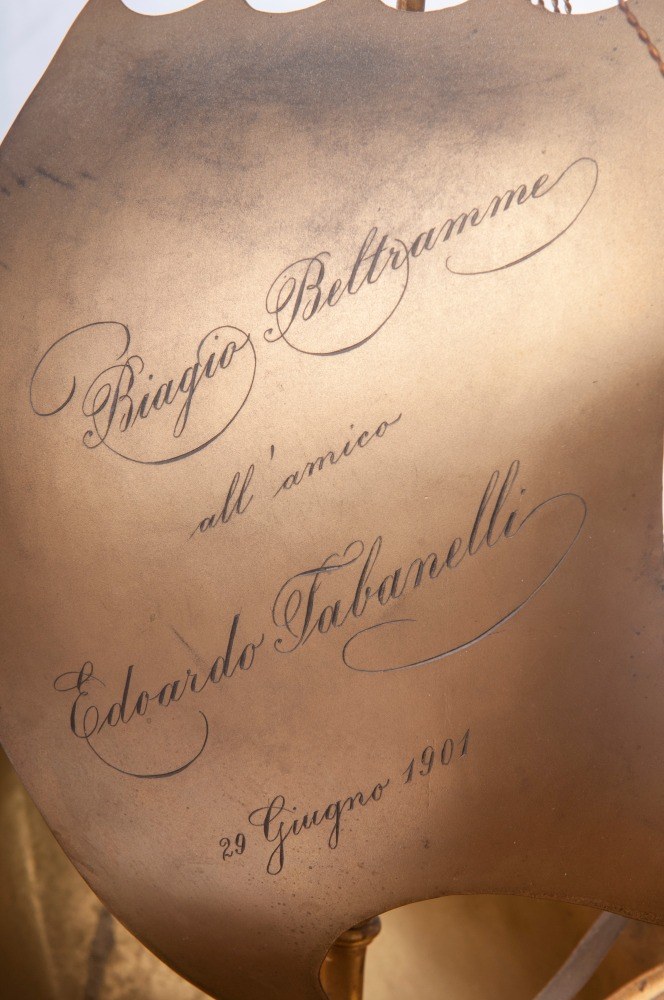 Biagio Beltramme
all'amico
Edoardo Tabanelli
29 Giugno 1901